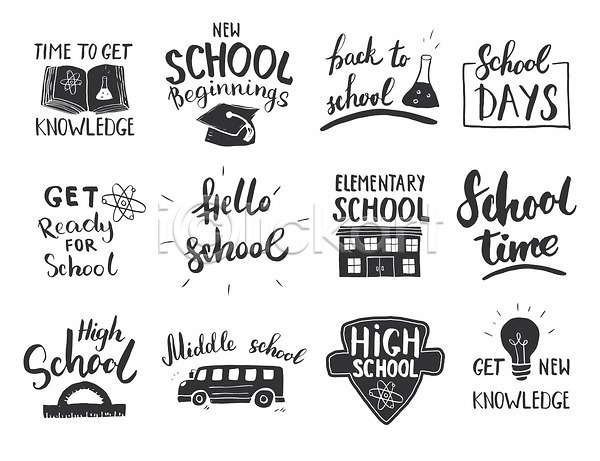 TIME TO GET
KNOWLEDGE
NEW
SCHOOL
Beginnings
back to
school
School
DAYS
GET
Ready
FOR
School
Hello
school
ELEMENTARY
SCHOOL
School
time
High
School
Middle school
HiGH
SCHOOL
GET NEW
KNOWLEDGE
iclickart